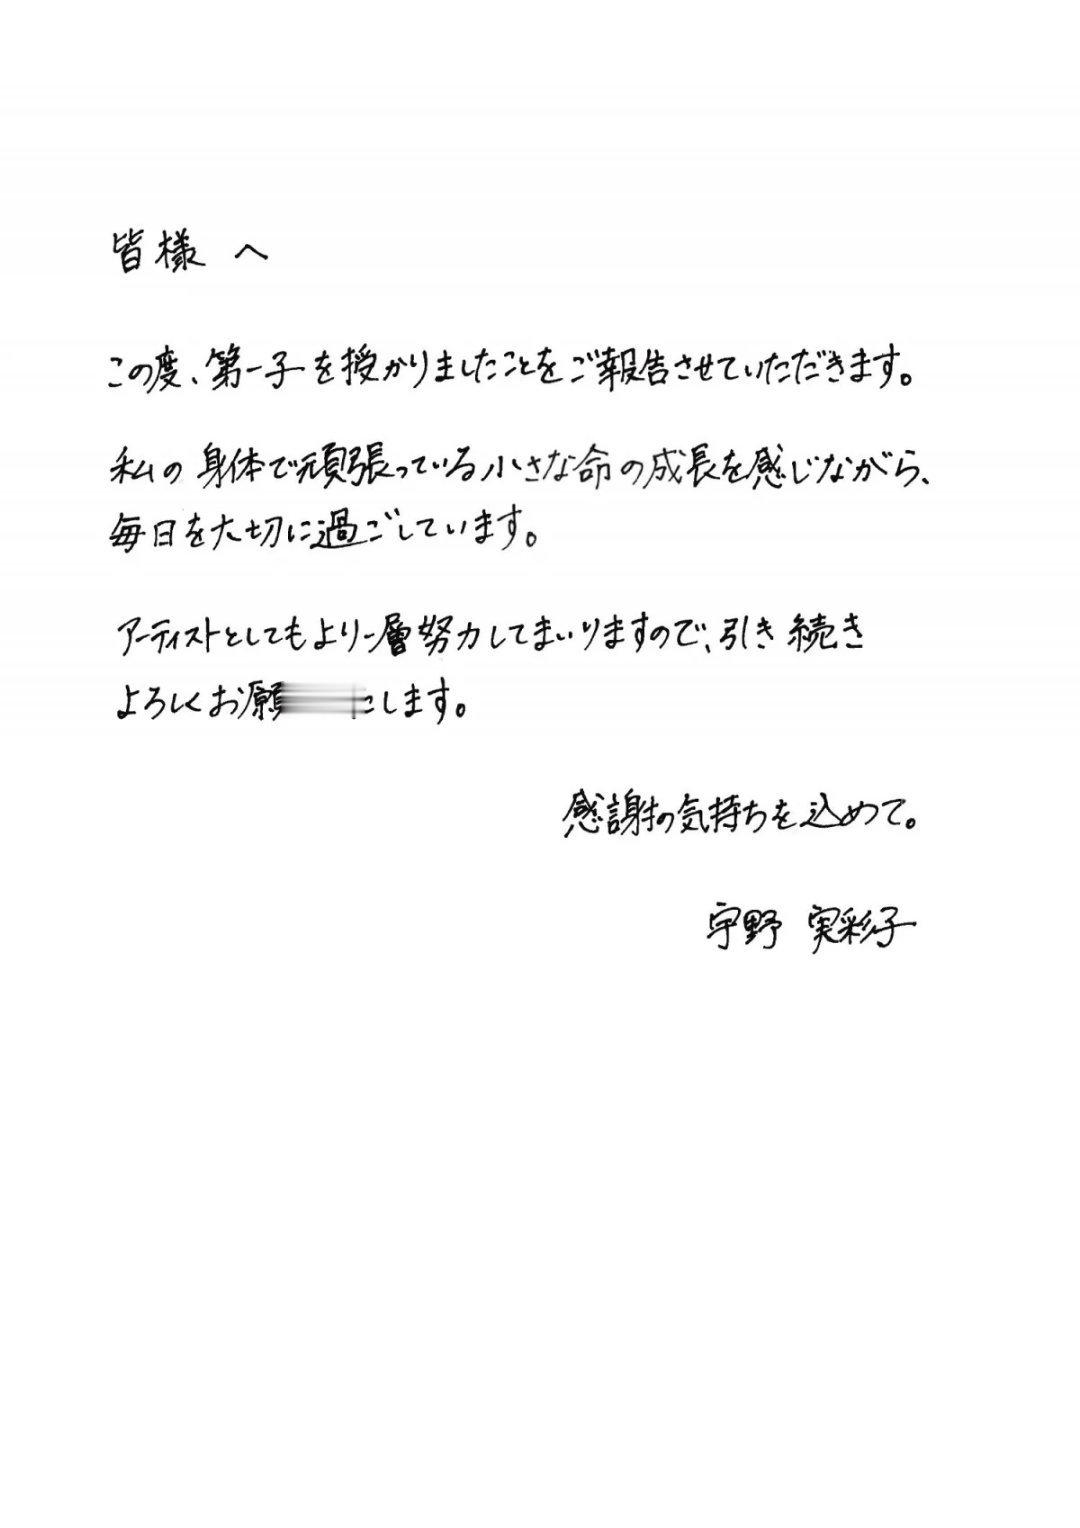 皆様 へ
この度、第一子を授かりましたことをご報告させていただきます。
私の身体で頑張っている小さな命の成長を感じながら、
毎日を大切に過ごしています。
アーティストとしてもより一層努力してまいりますので、引き続き
よろしくお願 します。
感謝の気持ちを込めて。
宇野 実彩子